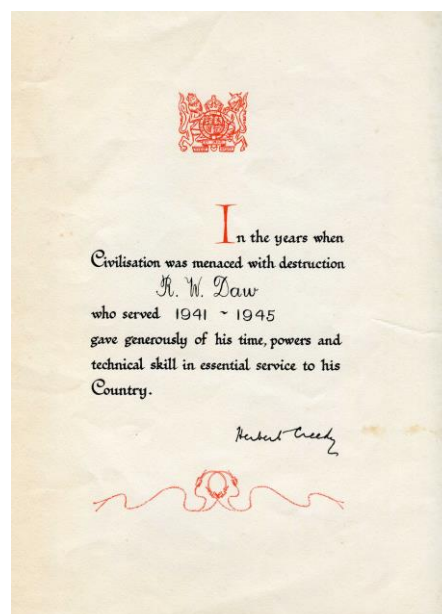 In the years when
Civilisation was menaced with destruction
R. W. Daw
who served 1941 ~ 1945
gave generously of his time, powers and
technical skill in essential service to his
Country.
Herbert Creedy